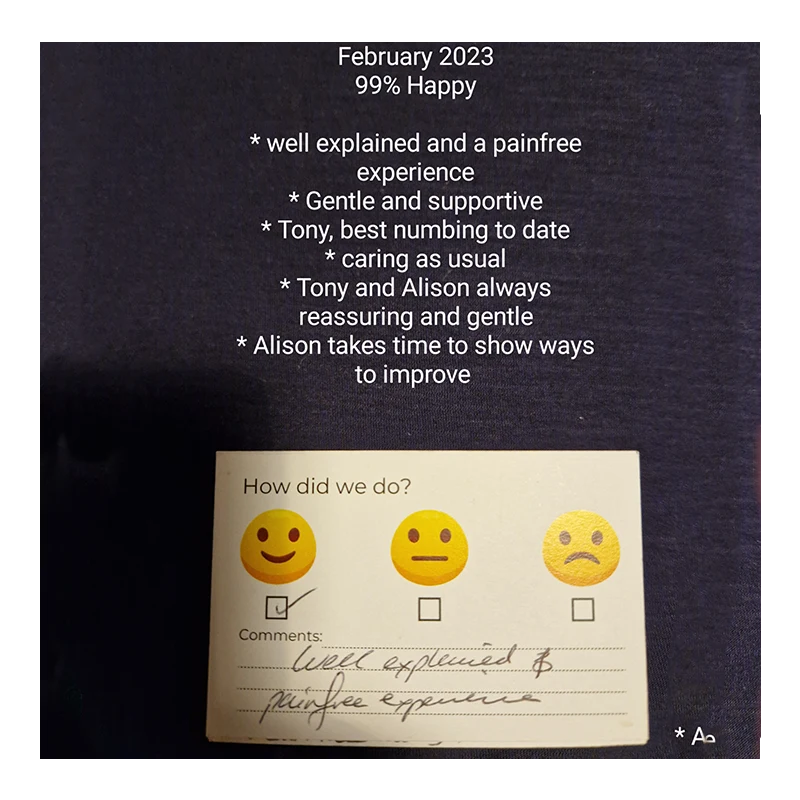 February 2023
99% Happy
* well explained and a painfree
experience
* Gentle and supportive
* Tony, best numbing to date
* caring as usual
* Tony and Alison always
reassuring and gentle
* Alison takes time to show ways
to improve
How did we do?
Comments:
Well explained &
painfree experience